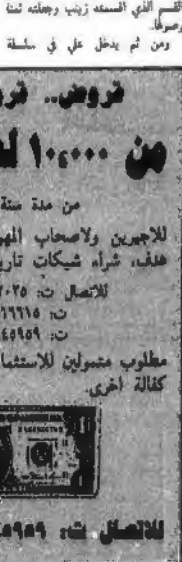 القسم الذي اقسمته زينب وجعلته ثمنا
وصولها.
ومن ثم يدخل علي في سلسلة
قروض.. قرو
من ١٠،٠٠٠ ل
من مدة سنة
للاجيرين ولاصحاب المه
هدف، شراء شيكات تار
للاتصال ت: ٢٠٢٥
ت: ٦٦٦١٥
ت: ٤٥٩٥٩
مطلوب متمولين للاستثما
كفالة اخرى.
للاتصال ت: ٥٩٥٩